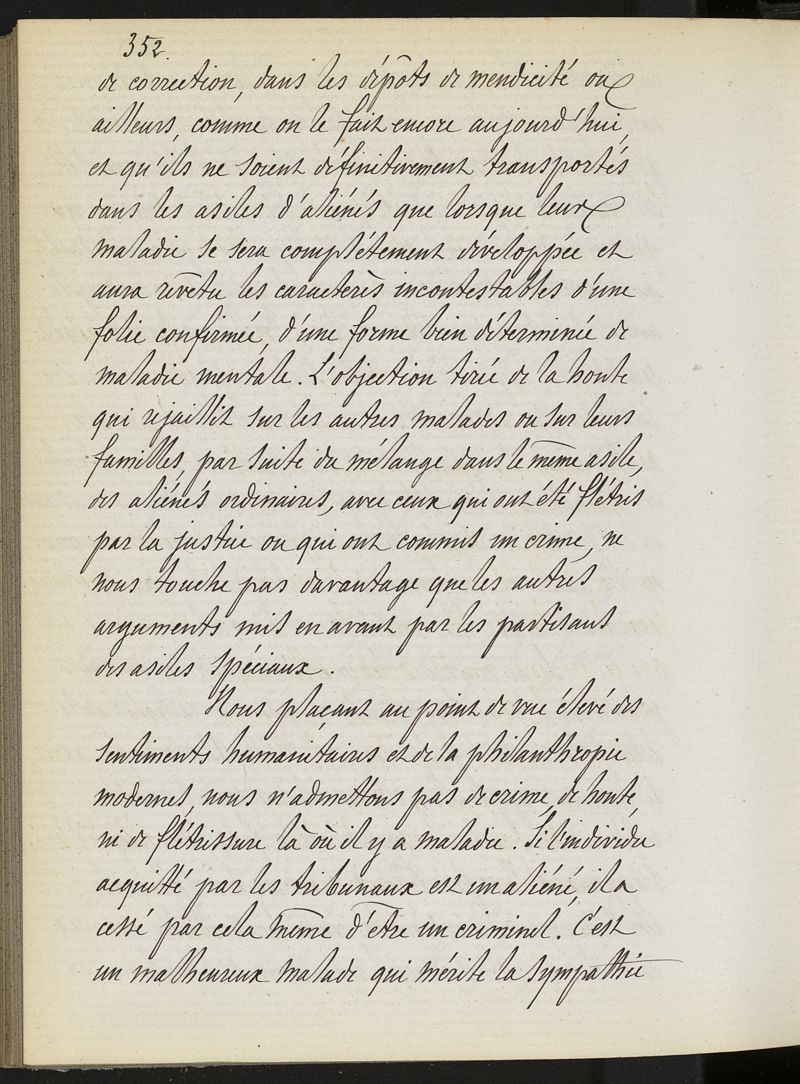 352.
de correction, dans les dépôts de mendicité ou
ailleurs, comme on le fait encore aujourd'hui,
et qu'ils ne soient définitivement transportés
dans les asiles d'aliénés que lorsque leur
maladie se sera complétement développée et
aura revêtu les caractères incontestables d'une
folie confirmée, d'une forme bien déterminée de
maladie mentale. L'objection tirée de la honte
qui rejaillit sur les autres malades ou sur leurs
familles, par suite du mélange dans le même asile,
des aliénés ordinaires, avec ceux qui ont été flétris
par la justice ou qui ont commis un crime, ne
nous touche pas davantage que les autres
arguments mis en avant par les partisans
des asiles spéciaux.
Nous plaçant au point de vue élevé des
sentiments humanitaires et de la philanthropie
modernes, nous n'admettons pas de crime, de honte,
ni de flétrissure là où il y a maladie. Si l'individu
acquitté par les tribunaux est un aliéné, il a
cessé par cela même d'être un criminel. C'est
un malheureux malade qui mérite la sympathie